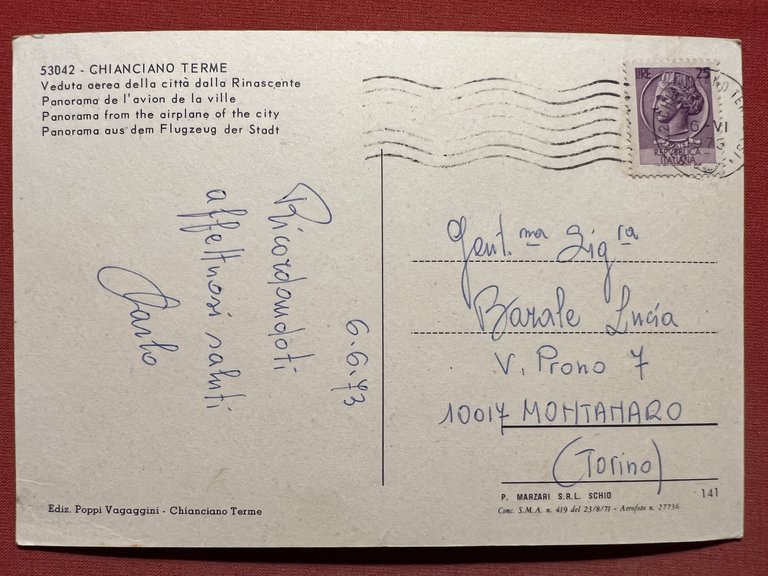 53042 - CHIANCIANO TERME
Veduta aerea della città dalla Rinascente
Panorama de l'avion de la ville
Panorama from the airplane of the city
Panorama aus dem Flugzeug der Stadt
LIRE 25
REPUBBLICA
ITALIANA
6 VI
6.6.73
Ricordandoti
affettuosi saluti
Carlo
Gent.ma Sig.ra
Barale Lucia
V. Prono 7
10017 MONTANARO
(Torino)
Ediz. Poppi Vagaggini - Chianciano Terme
P. MARZARI S.R.L. SCHIO
141
Conc. S.M.A. n. 419 del 23/8/71 - Aerofoto n. 27736